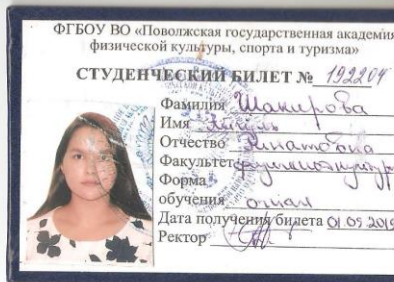 ФГБОУ ВО «Поволжская государственная академия
физической культуры, спорта и туризма»
СТУДЕНЧЕСКИЙ БИЛЕТ № 192204
Фамилия Шакирова
Имя
Отчество
Факультет
Форма
обучения очная
Дата получения билета 01.09.2019
Ректор